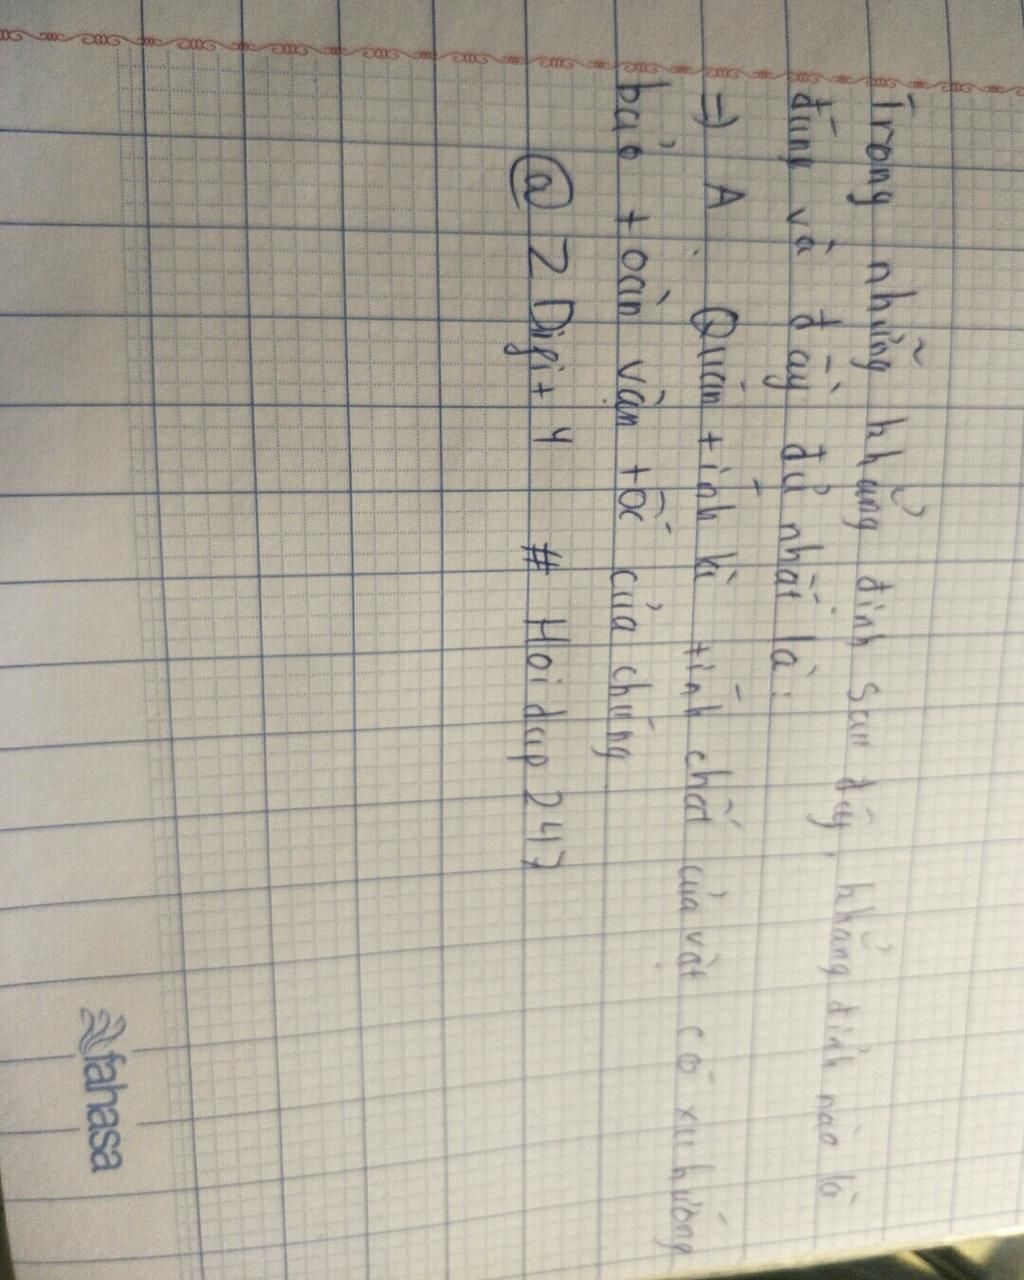 Trong những khẳng định sau đây, khẳng định nào là
đúng và đầy đủ nhất là:
=) A. Quán tính là tính chất của vật có xu hướng
bảo toàn vận tốc của chúng
@ZDigit4 # Hoidap247
fahasa